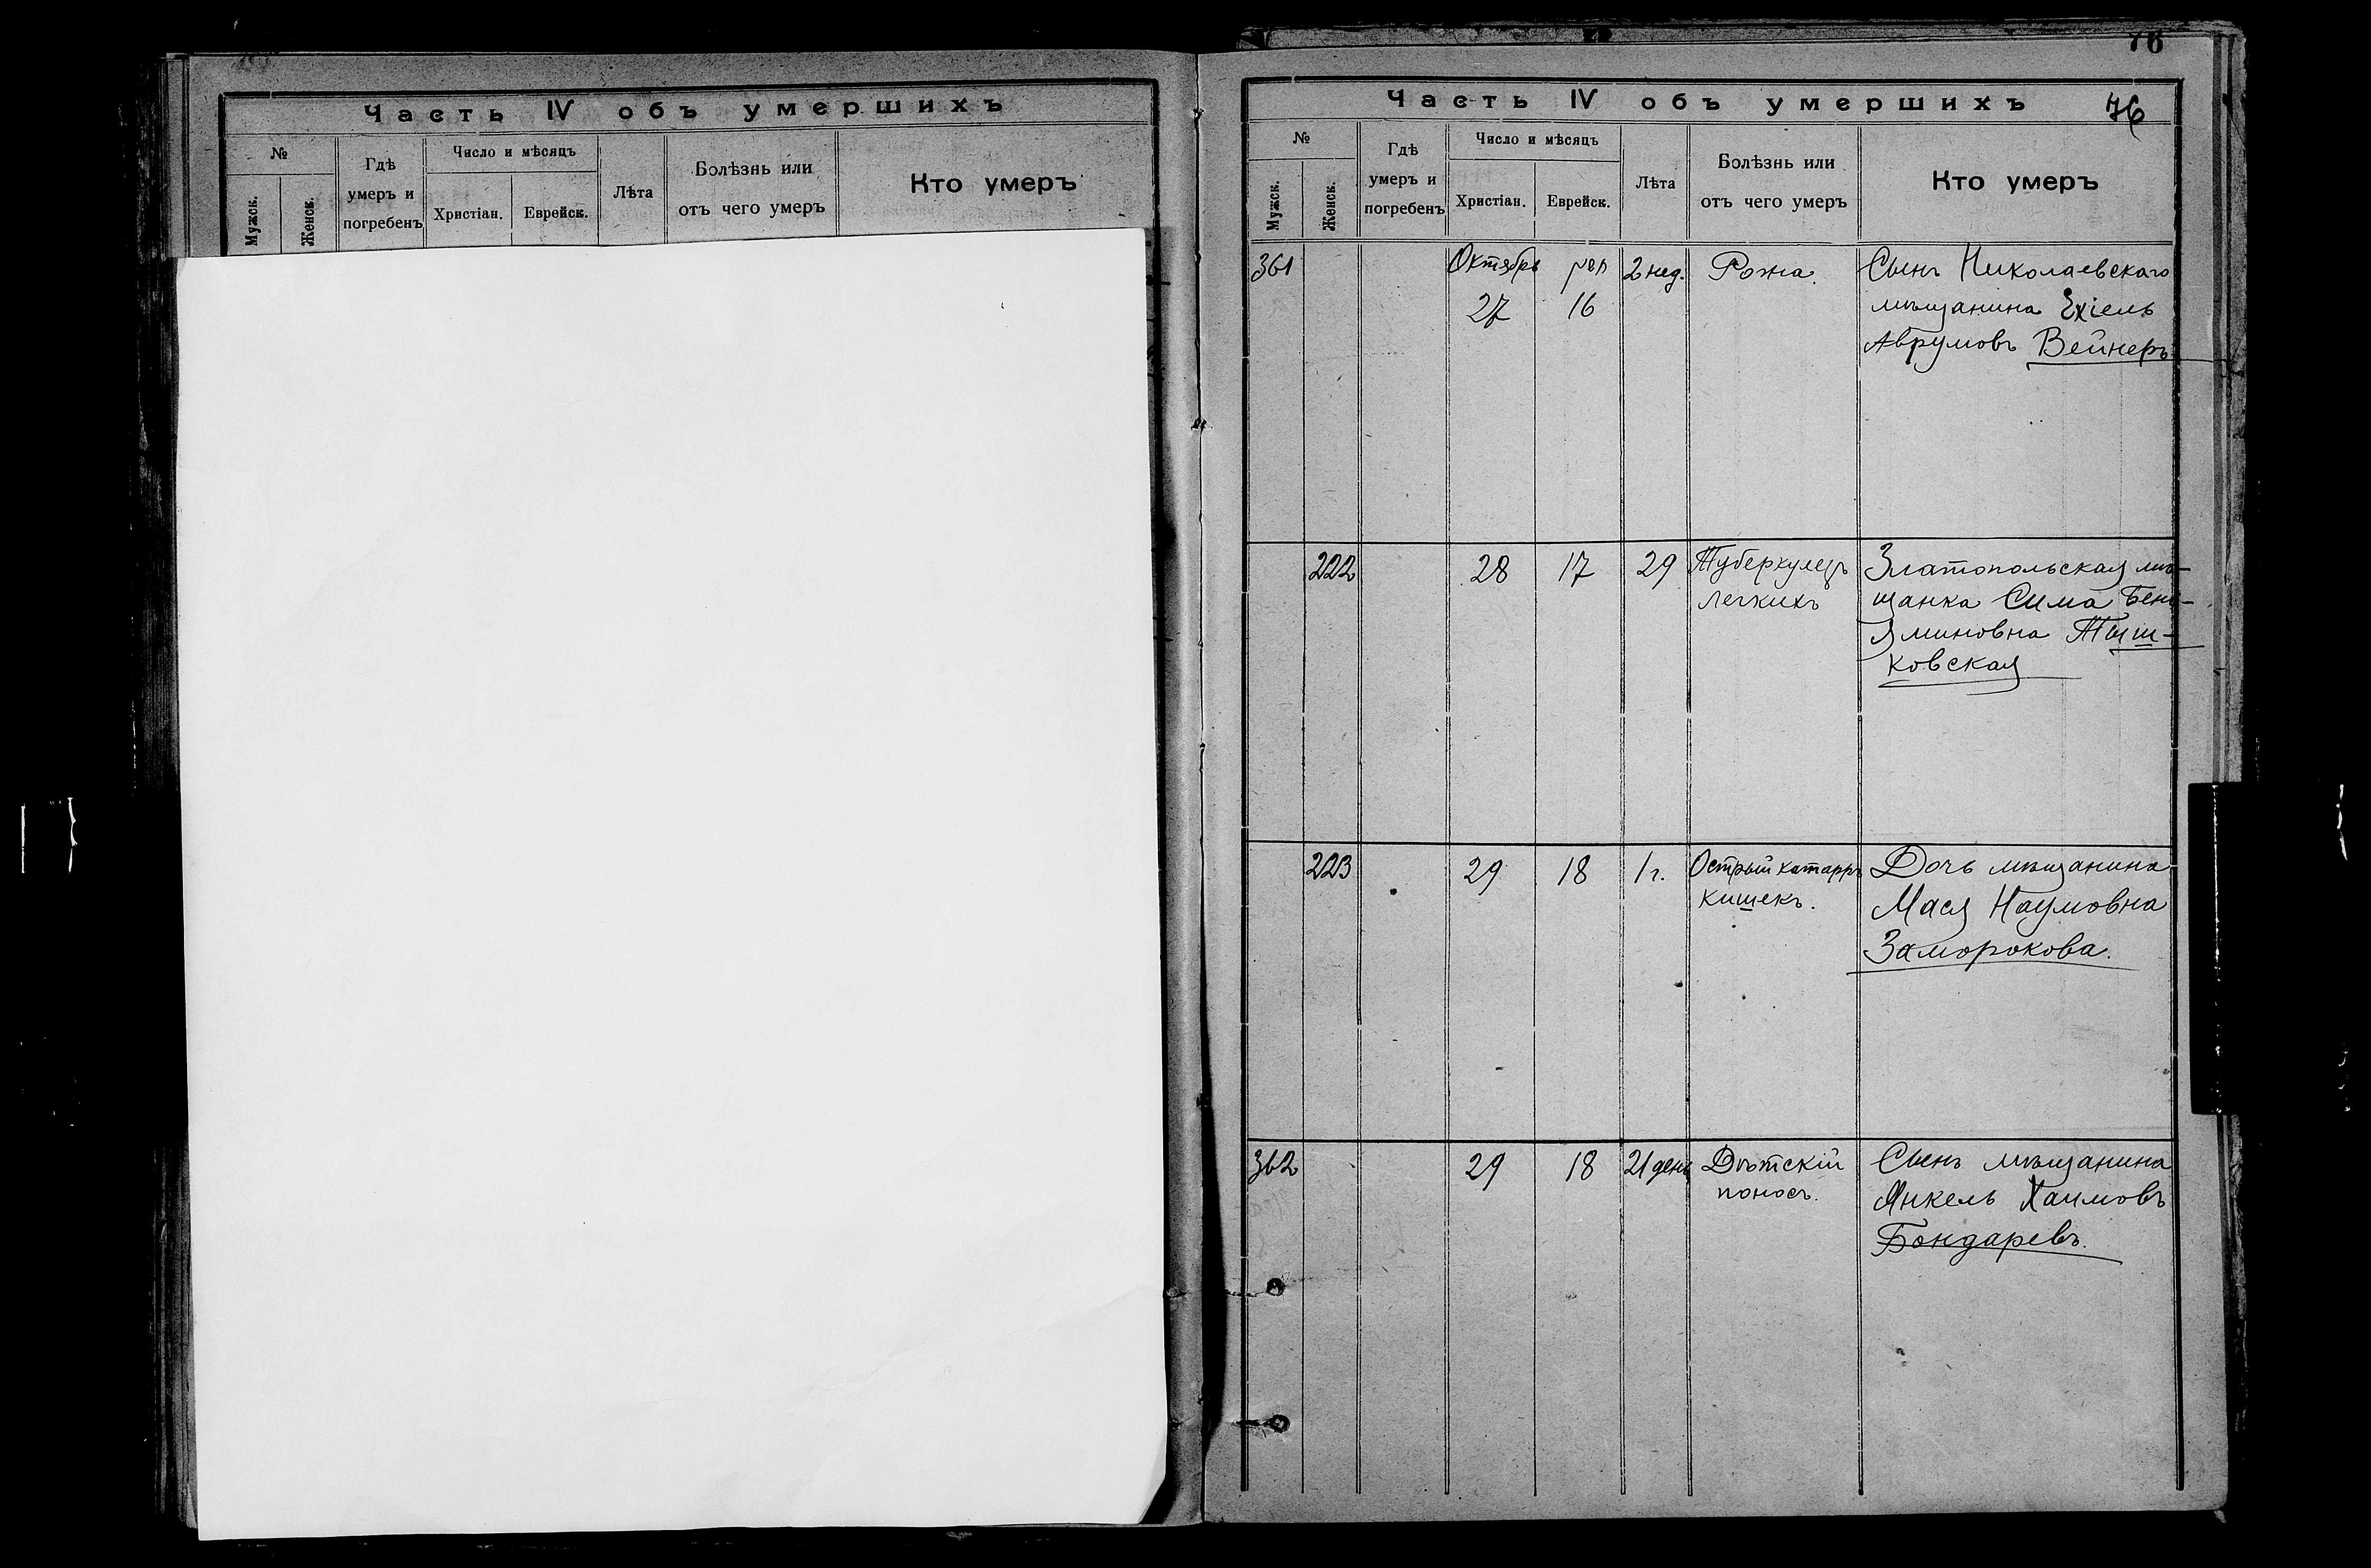 Часть IV объ умершихъ
№
Мужск.
Женск.
Гдѣ
умеръ и
погребенъ
Число и мѣсяцъ
Христіан.
Еврейск.
Лѣта
Болѣзнь или
отъ чего умеръ
Кто умеръ
76
Часть IV объ умершихъ 76
№
Мужск.
Женск.
Гдѣ
умеръ и
погребенъ
Число и мѣсяцъ
Христіан.
Еврейск.
Лѣта
Болѣзнь или
отъ чего умеръ
Кто умеръ
361
Октябрь
27
חשון
16
2 нед.
Рожа.
Сынъ Николаевскаго
мѣщанина Ехіель
Аврумовъ Вейнеръ
222
28
17
29
Туберкулезъ
легкихъ
Златопольская мѣ-
щанка Сима Бень-
яминовна Тыш-
ковская
223
29
18
1 г.
Острый катарръ
кишекъ.
Дочь мѣщанина
Мася Наумовна
Заморокова.
362
29
18
21 день
Дѣтскій
поносъ.
Сынъ мѣщанина
Янкель Хаимовъ
Бондаревъ.